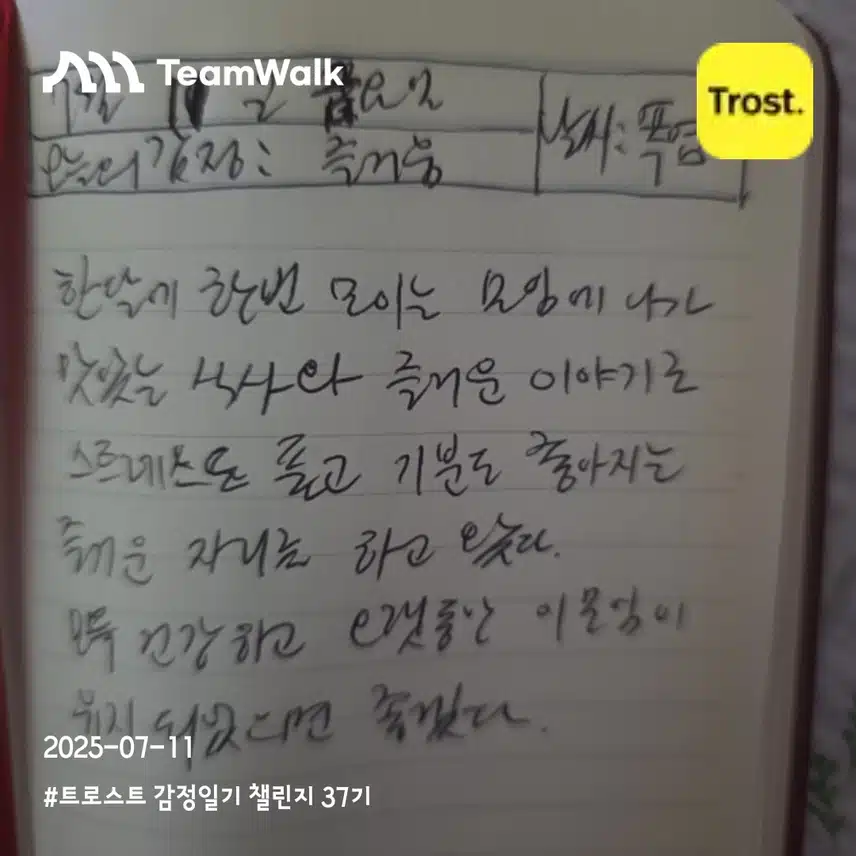 TeamWalk
Trost.
7월 11일 금요일
날씨: 폭염
오늘의 감정: 즐거움
한달에 한번 모이는 모임에 나가
맛있는 식사와 즐거운 이야기로
스트레스도 풀고 기분도 좋아지는
즐거운 자리를 하고 왔다.
모두 건강하고 오랫동안 이 모임이
유지 되었으면 좋겠다.
2025-07-11
#트로스트 감정일기 챌린지 37기